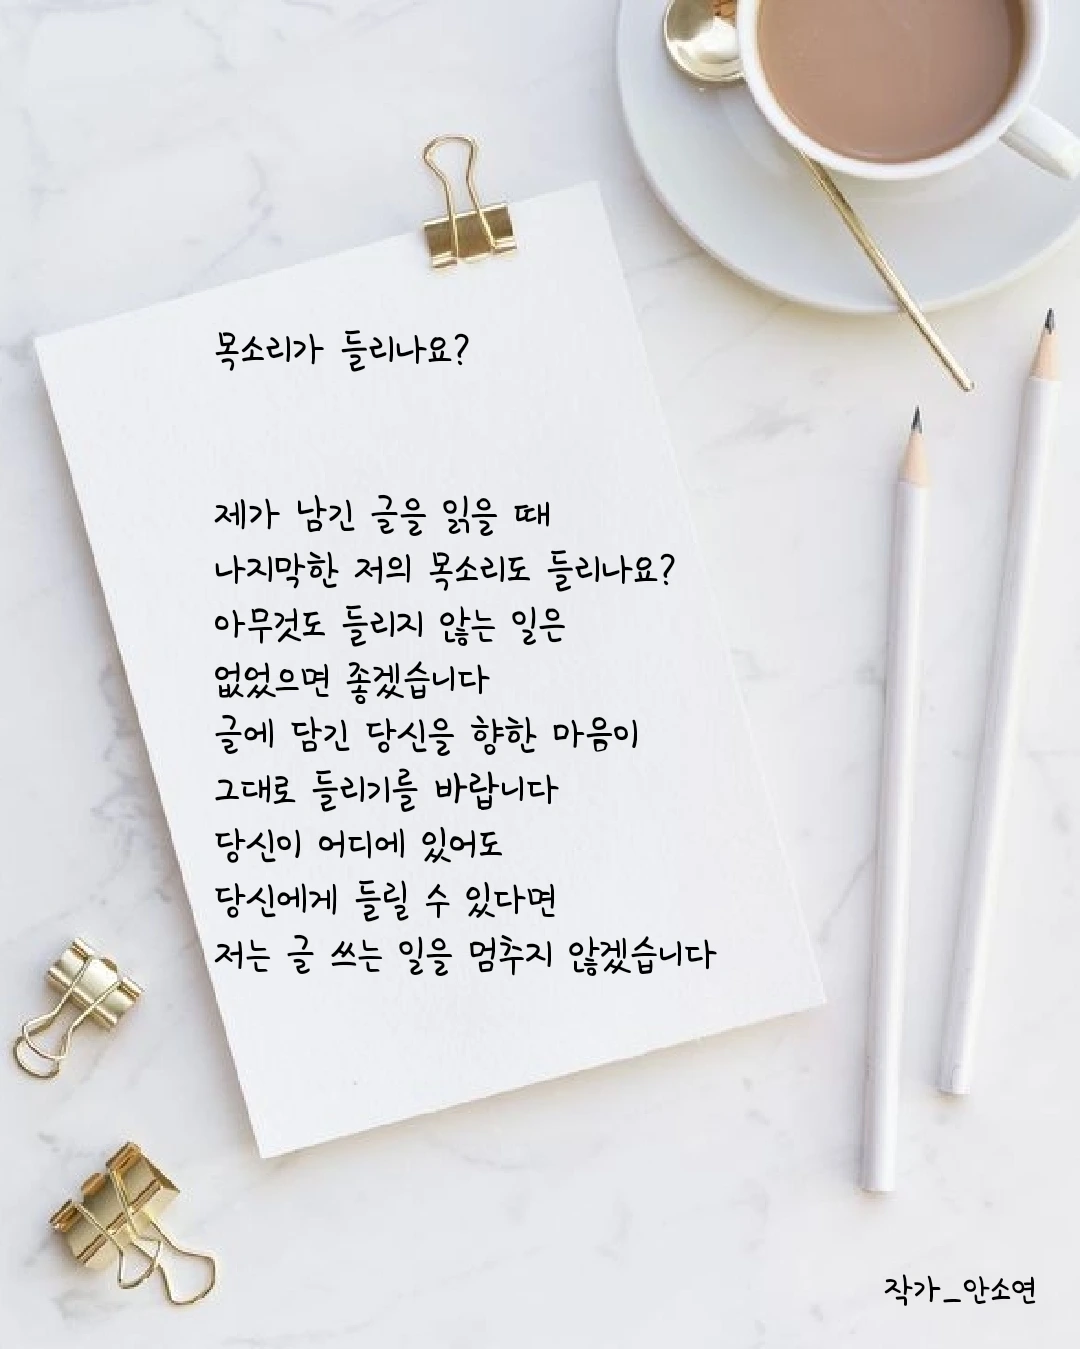 목소리가 들리나요?
제가 남긴 글을 읽을 때
나지막한 저의 목소리도 들리나요?
아무것도 들리지 않는 일은
없었으면 좋겠습니다
글에 담긴 당신을 향한 마음이
그대로 들리기를 바랍니다
당신이 어디에 있어도
당신에게 들릴 수 있다면
저는 글 쓰는 일을 멈추지 않겠습니다
작가_안소연